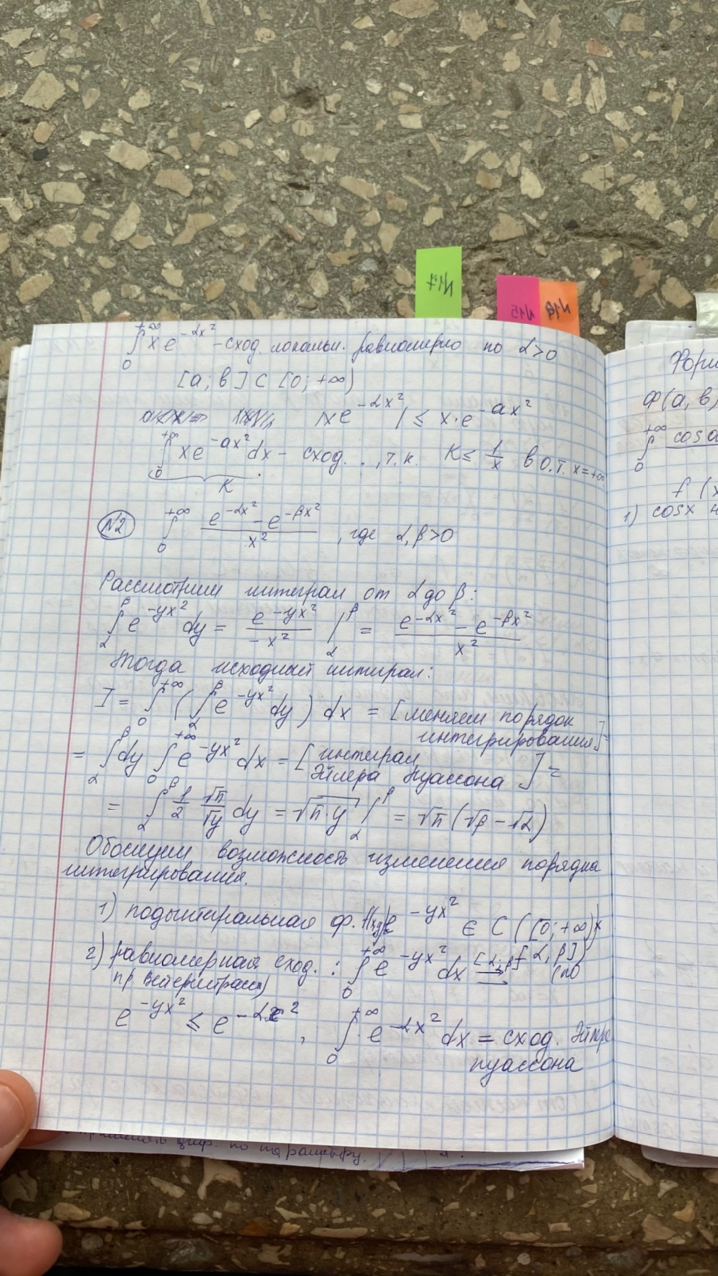 N17
N15
N18
∫₀^{+∞} x e^{-αx²} - сход. локальн. равномерно по α>0
[a, b] ⊂ [0; +∞)
|xe^{-αx²}| ≤ x·e^{-ax²}
∫₀^{+∞} xe^{-ax²}dx - сход. .. , т.к. K ≤ 1/x в о.т. x=+∞
K
N2 ∫₀^{+∞} (e^{-αx²} - e^{-βx²})/x² , где α, β>0
Рассмотрим интеграл от α до β:
∫_α^β e^{-yx²}dy = e^{-yx²}/(-x²) |_α^β = (e^{-αx²} - e^{-βx²})/x²
Тогда исходный интеграл:
I = ∫₀^{+∞} (∫_α^β e^{-yx²}dy) dx = [меняем порядок
интегрирования] =
= ∫_α^β dy ∫₀^{+∞} e^{-yx²}dx = [интеграл
Эйлера Пуассона] =
= ∫_α^β 1/2 √π/√y dy = √π·y |_α^β = √π(√β - √α)
Обоснуем возможность изменения порядка
интегрирования.
1) подынтегральная ф. e^{-yx²} ∈ C([0; +∞)×
[α, β])
2) равномерная сход. : ∫₀^{+∞} e^{-yx²}dx ⇉^{[α, β]} (по
пр Вейерштрасса)
e^{-yx²} ≤ e^{-αx²} , ∫₀^{+∞} e^{-αx²}dx = сход.
пуассона
по параметру.
Ф(a, b)
∫₀^{+∞} cos a
f(x
1) cosx